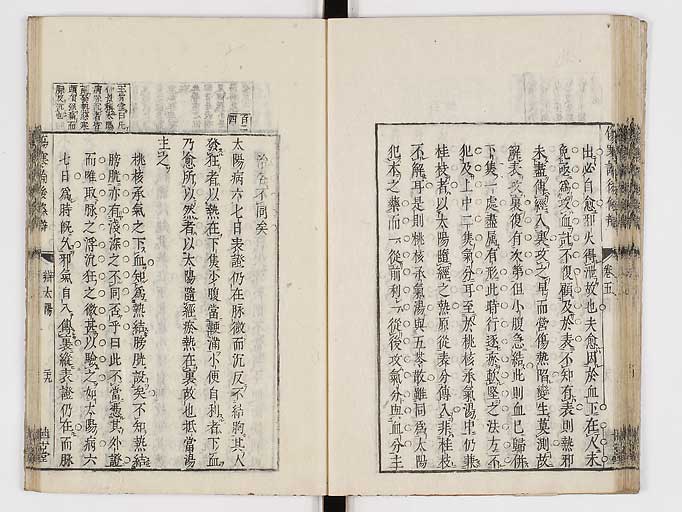 出必自愈邪火得泄故也夫愈因於血下在人未
免亟爲攻血計不復顧及於表不知有表則熱邪
未盡傳經入裏攻之早而營傷熱陷變生莫測故
解表攻裏復有次第但小腹急結此則血已歸併
下集一處盡屬有形此時行逐瘀軟堅之法方不
犯及上中二集氣分耳至於桃核承氣湯中仍兼
桂枝者以太陽隨經之熱原從表分傳入非桂枝
不解耳是則桃核承氣湯與五苓散雖同爲太陽
犯本之藥而一從前利一從後攻氣分與血分主
卷五
治各不同矣
百二
四
太陽病六七日表證仍在脉微而沉反不結胸其人
發狂者以熱在下集少腹當鞕滿小便自利者下血
乃愈所以然者以太陽隨經瘀熱在裏故也抵當湯
主之
桃核承氣之下血知爲熱結膀胱誤矣不知熱結
膀胱亦有淺深之不同否乎曰此不當憑其外證
而唯取脉之浮沉狂之微甚以驗之如太陽病六
七日爲時既久邪氣自入傳裏縱表證仍在而脉
辯太陽